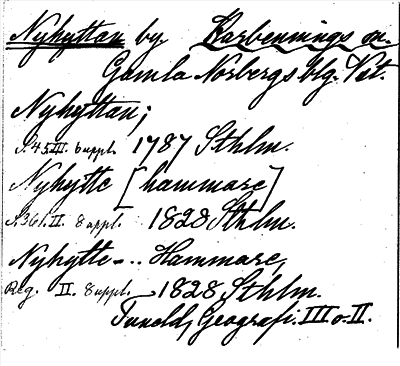 Nyhyttan by Karbennings sn.
Gamla Norbergs blg. Vst.
Nyhyttan;
S. 45. III. 6 uppl. 1787 Sthlm.
Nyhytte [hammare]
S. 361. II. 8 uppl. 1828 Sthlm.
Nyhytte-.. Hammare,
Reg. II. 8 uppl. 1828 Sthlm.
Tuneld, Geografi. III o. II.